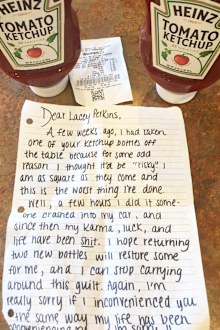 HEINZ
TOMATO
KETCHUP
HEINZ
TOMATO
KETCHUP
Dear Lacey Perkins,
A few weeks ago, I had taken
one of your ketchup bottles off
the table because for some odd
reason I thought it'd be "risky". I
am as square as they come and
this is the worst thing I've done.
Well, a few hours I did it some-
one crashed into my car, and
since then my karma, luck, and
life have been shit. I hope returning
two new bottles will restore some
for me, and I can stop carrying
around this guilt. Again, I'm
really sorry if I inconvenienced you
the same way my life has been